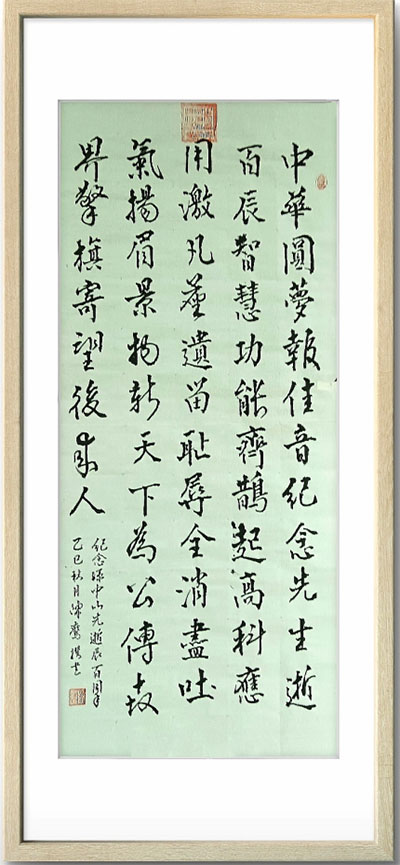 中華圓夢報佳音紀念先生逝
百辰智慧功能齊鵲起高科應
用激凡塵遺留恥辱全消盡吐
氣揚眉景物新天下為公傳
界擎旗寄望後來人
紀念孫中山先逝辰百周年
乙巳秋月陳撰書